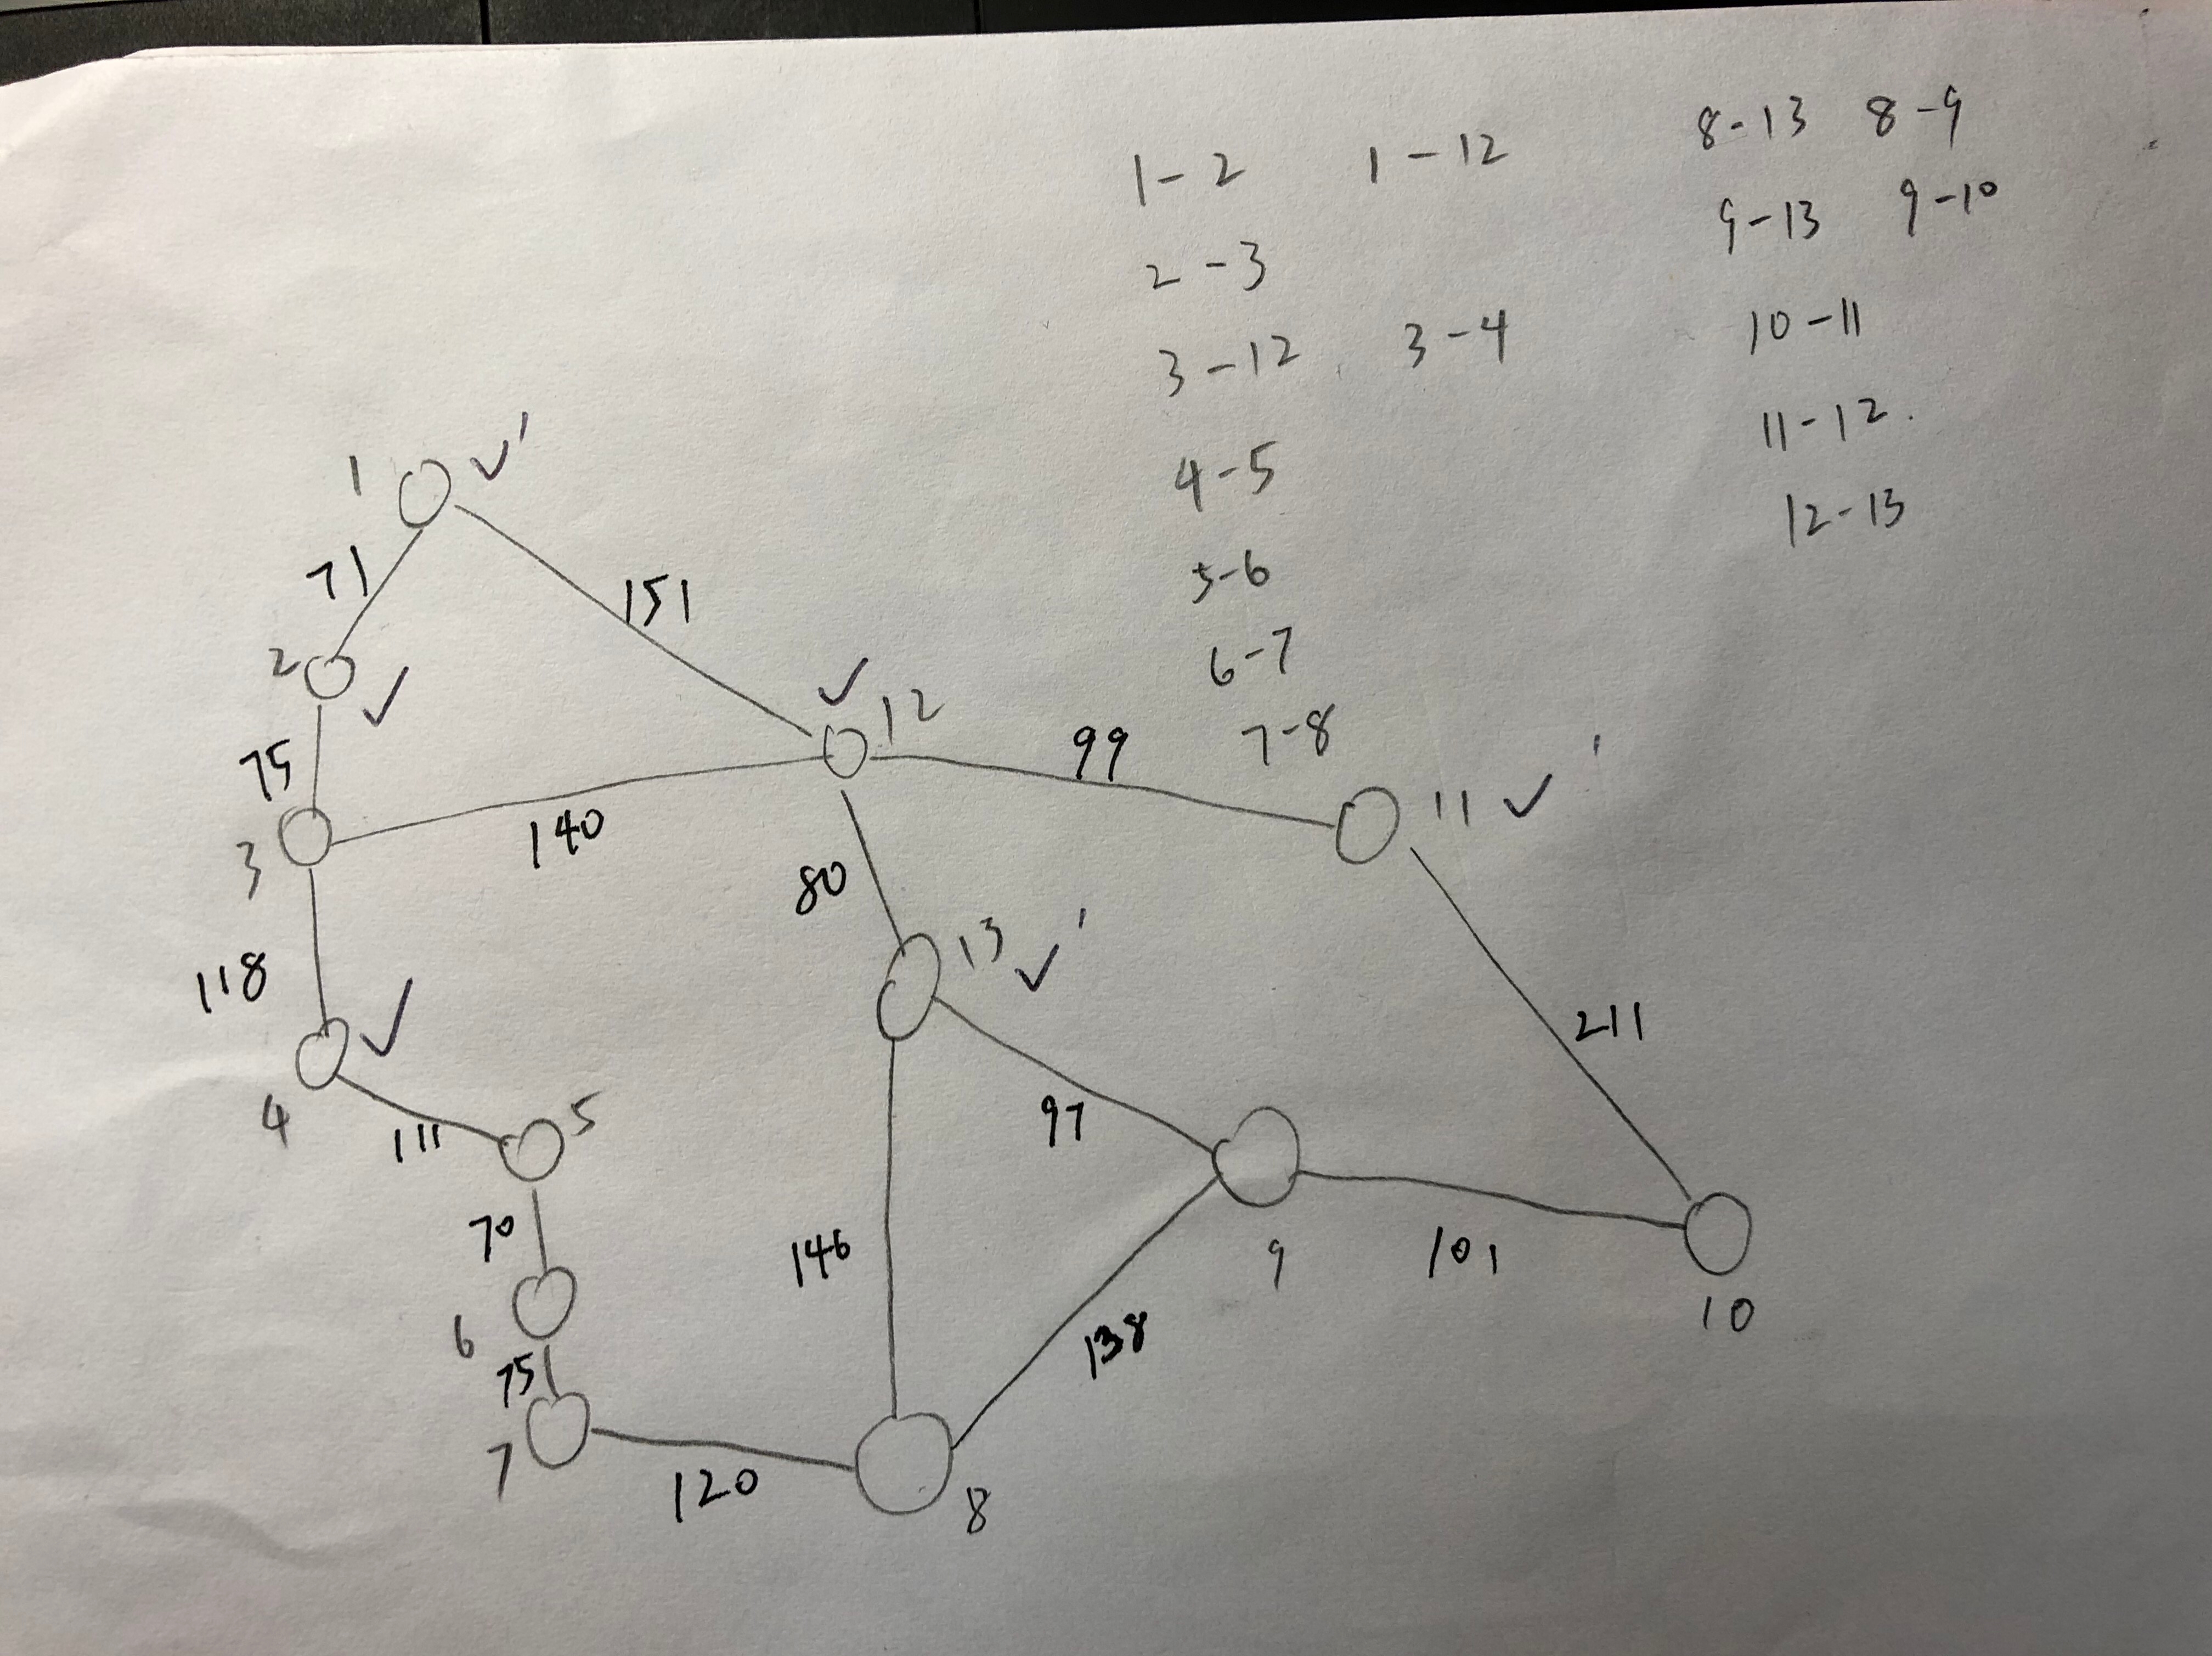 1-2 1-12
2-3
3-12 3-4
4-5
5-6
6-7
7-8
8-13 8-9
9-13 9-10
10-11
11-12.
12-13
1 ✓
71
151
2 ✓
✓ 12
75
99
11 ✓
140
3
80
13 ✓
118
211
4 ✓
5
111
97
70
146
9
101
10
6
138
75
7
120
8